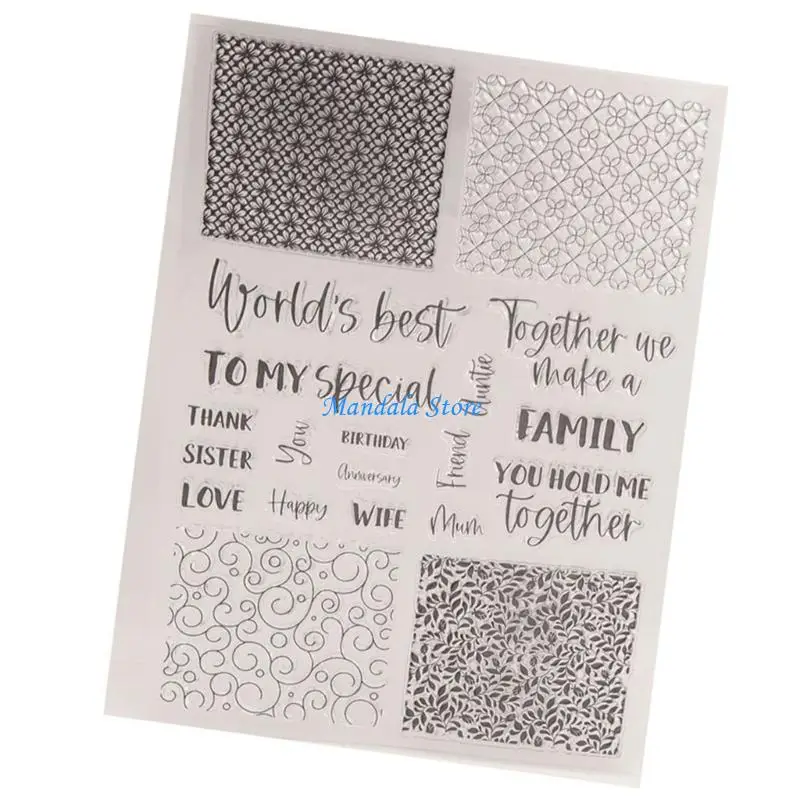 World's best
TO MY special
Mandala Store
THANK
SISTER
LOVE
You
Happy
BIRTHDAY
Anniversary
WIFE
Auntie
Friend
Mum
Together we
make a
FAMILY
YOU HOLD ME
together